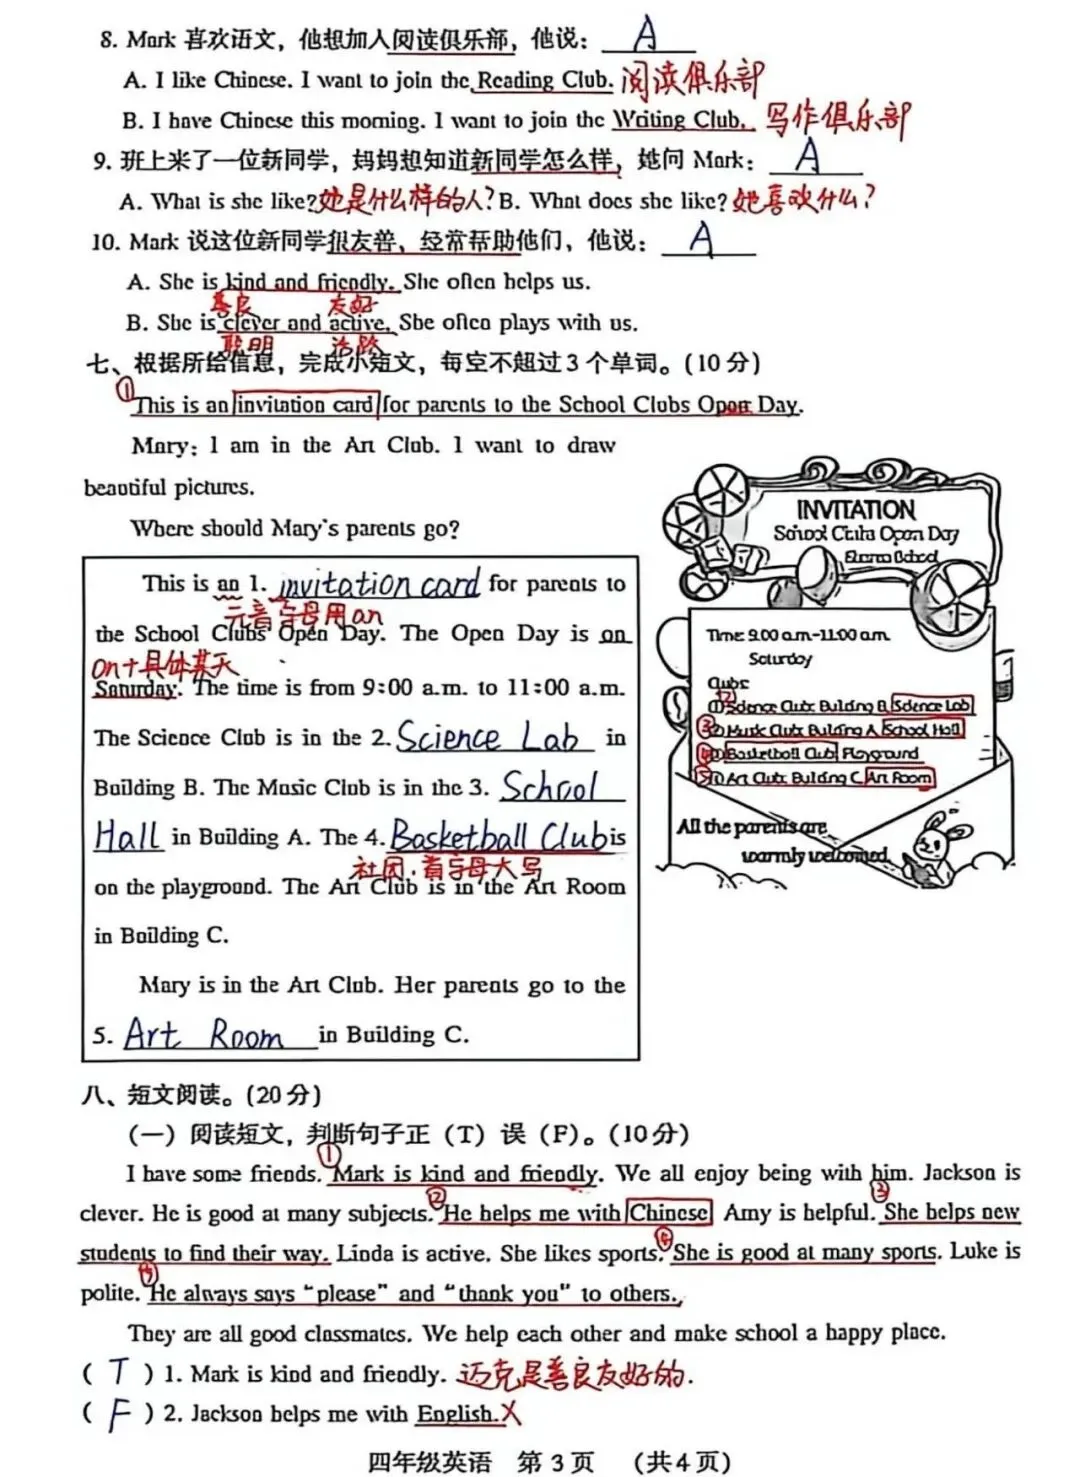 8. Mark 喜欢语文，他想加入阅读俱乐部，他说： A
A. I like Chinese. I want to join the Reading Club. 阅读俱乐部
B. I have Chinese this morning. I want to join the Writing Club. 写作俱乐部
9. 班上来了一位新同学，妈妈想知道新同学怎么样，她问 Mark： A
A. What is she like? 她是什么样的人? B. What does she like? 她喜欢什么?
10. Mark 说这位新同学很友善，经常帮助他们，他说： A
A. She is kind and friendly. She often helps us.
善良 友好
B. She is clever and active. She often plays with us.
聪明 活跃
七、根据所给信息，完成小短文，每空不超过 3 个单词。(10 分)
① This is an invitation card for parents to the School Clubs Open Day.
Mary: I am in the Art Club. I want to draw
beautiful pictures.
Where should Mary's parents go?
This is an 1. invitation card for parents to
元音字母用an
the School Clubs' Open Day. The Open Day is on
on+具体某天
Saturday. The time is from 9:00 a.m. to 11:00 a.m.
The Science Club is in the 2. Science Lab in
Building B. The Music Club is in the 3. School
Hall in Building A. The 4. Basketball Club is
社团.首字母大写
on the playground. The Art Club is in the Art Room
in Building C.
Mary is in the Art Club. Her parents go to the
5. Art Room in Building C.
INVITATION
School Clubs Open Day
School
Time: 9:00 a.m.-11:00 a.m.
Saturday
Clubs:
② ① Science Club: Building B, Science Lab
③ ② Music Club: Building A, School Hall
④ Basketball Club: Playground
⑤ Art Club: Building C, Art Room
All the parents are
warmly welcomed.
八、短文阅读。(20 分)
（一）阅读短文，判断句子正（T）误（F）。(10 分)
I have some friends. ① Mark is kind and friendly. We all enjoy being with him. Jackson is
clever. He is good at many subjects. ② He helps me with Chinese. Amy is helpful. ③ She helps new
students to find their way. Linda is active. She likes sports. ④ She is good at many sports. Luke is
polite. ⑤ He always says “please” and “thank you” to others.
They are all good classmates. We help each other and make school a happy place.
( T ) 1. Mark is kind and friendly. 迈克是善良友好的.
( F ) 2. Jackson helps me with English. X
四年级英语 第 3 页 （共 4 页）